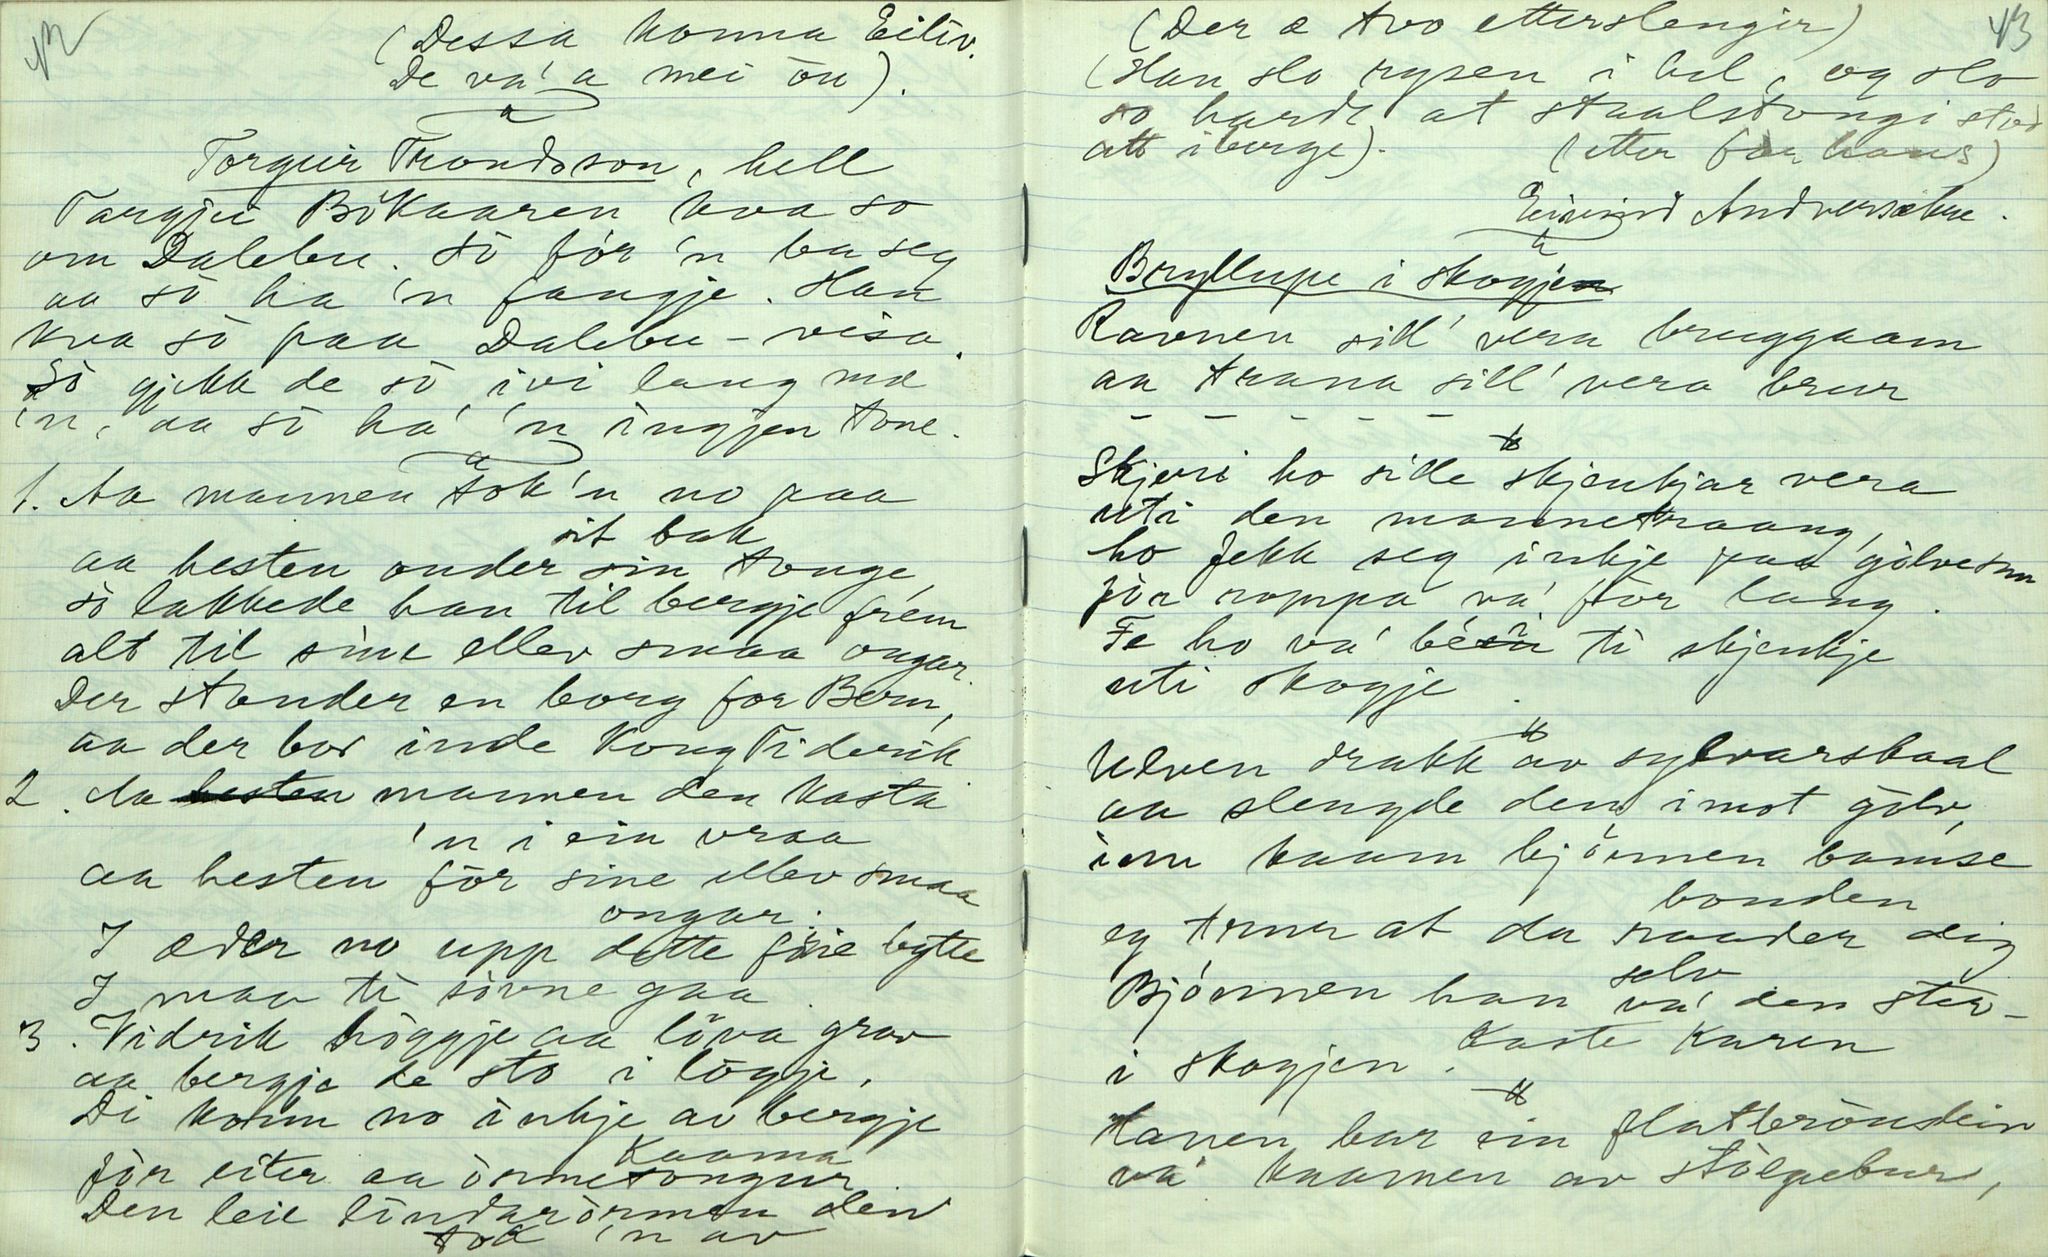 42
(Dessa konna Eiliv.
De va' a mei ón).
Torgeir Trondsson, hell
Targjei Bökaaren kva so
om Dalebu. Só fór 'n ba seg
aa só ha 'n fangje. Han
kva só paa Dalebu-visa.
Só gjekk de só ivi lang md
'n, aa só ha' 'n ingjen tone.
1. Aa mannen tok 'n no paa
sit bak
aa hesten onder sin tonge,
só lakkede han til bergje frem
alt til sine ellev smaa ongar.
Der stander en borg for Bern,
aa der bor inde Kong Tiderik
2. Aa hesten mannen den kasta
'n i ein vraa
aa hesten för sine ellev smaa
ongar.
I æder no upp dette fine bytte
I maa ti sövne gaa.
3. Vidrik höggje aa löva grov
aa bergje de sto i lögje,
Di komm no inkje av bergje
Kaama
för eiter aa örmetongur.
Den leie lindarörmen den
tok 'n av
43
(Der æ tvo etterslengir)
(Han slo rysen i hel, og slo
so hardt at staalstongi stod
att i berge). (etter far hans)
Eivind Andversehre.
Bryllupe i skogjen
Ravnen sill' vera bruggaam
aa trana sill' vera brur
- - - - - -
Skjeri ho sille skjenkjar vera
uti den mannetraang,
ho fekk seg inkje paa gólve snu
fór rompa va' fór lang.
Fe ho va' bei ti skjenkje
uti skogje.
Ulven drakk av sylvarskaal
aa slengde den imot gólv,
inn kaam bjönnen bamse
bonden
eg trur at du raader dig
selv
Bjönnen han va' den stör-
i skogjen. Kaste Karen
Hanen bar ein flatbröudlein
va' kaamen av stólpebur,